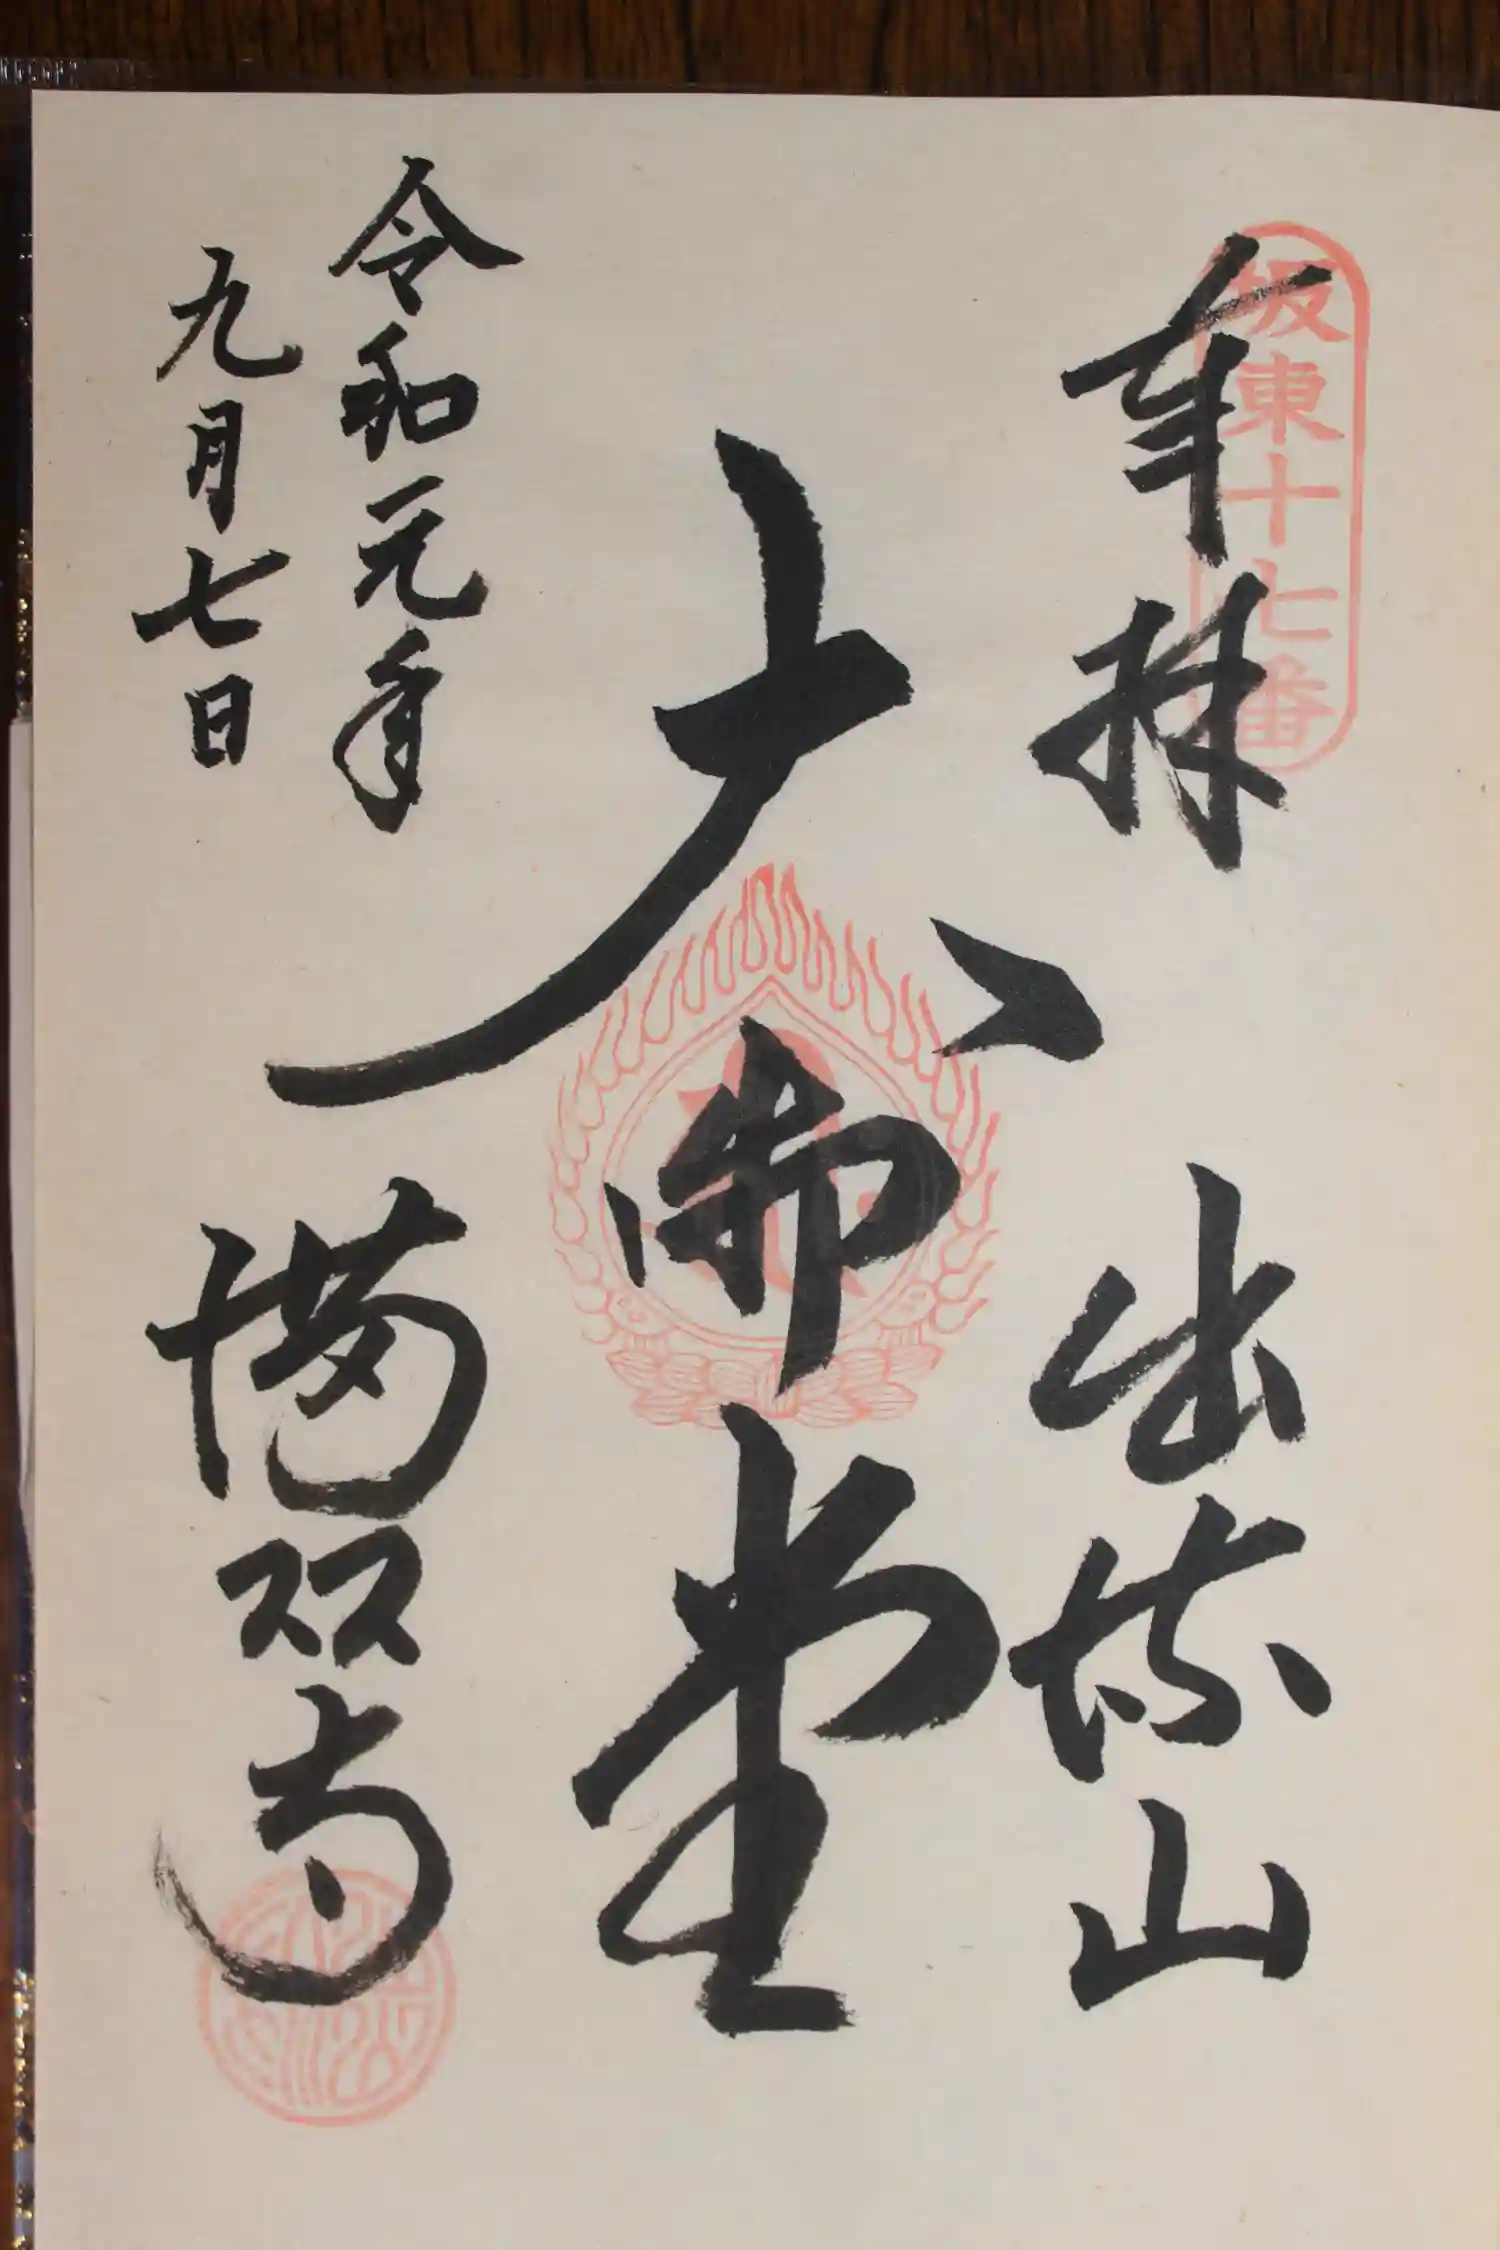 坂東十七番
奉拝 出流山
大御堂
令和元年
九月七日
満願寺